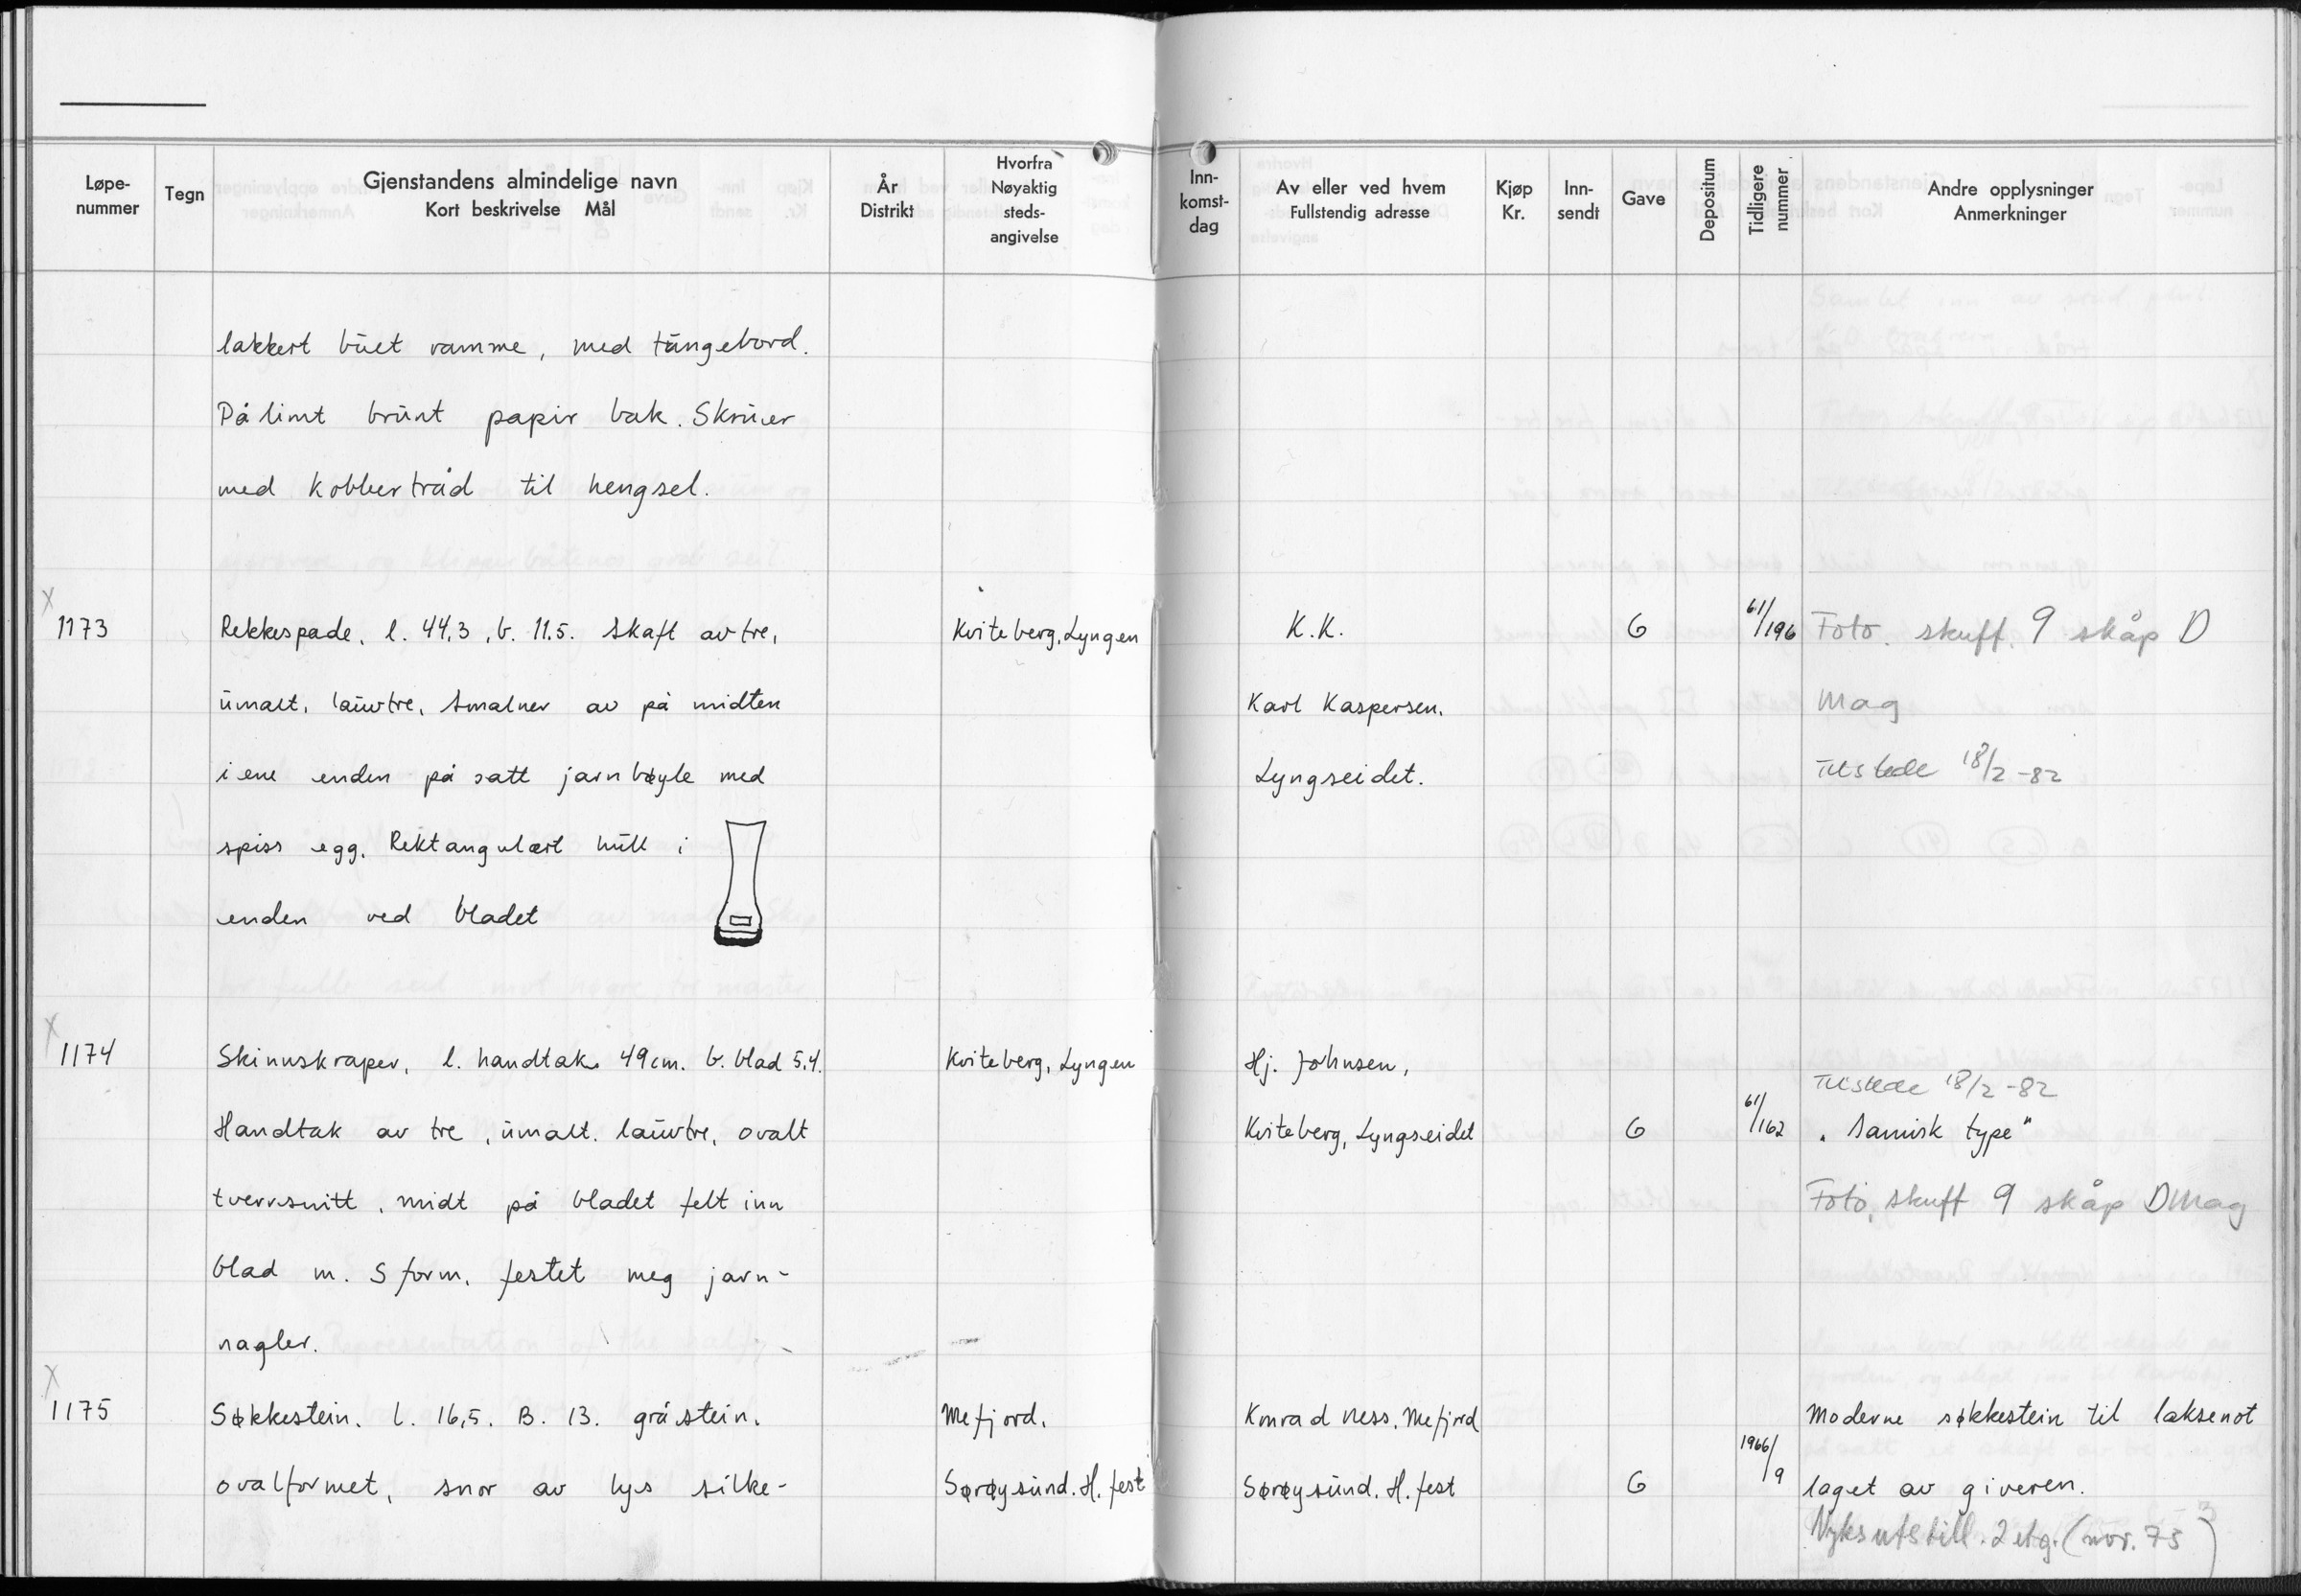 Løpe-
nummer
Tegn
Gjenstandens almindelige navn
Kort beskrivelse Mål
År
Distrikt
Hvorfra
Nøyaktig
steds-
angivelse
Inn-
komst-
dag
Av eller ved hvem
Fullstendig adresse
Kjøp
Kr.
Inn-
sendt
Gave
Depositum
Tidligere
nummer
Andre opplysninger
Anmerkninger
lakkert buet ramme, med tungebord.
Pålimt brunt papir bak. Skruer
med kobbertråd til hengsel.
x
1173 Rekkespade, l. 44,3, b. 11.5. Skaft av tre, Kviteberg, Lyngen K.K. G 61/196 Foto. skuff. 9 skåp D
umalt, lauvtre, smalner av på midten Karl Kaspersen. Mag
i ene enden på satt jarnbøyle med Lyngseidet. Tilstede 18/2-82
spiss egg. Rektangulært hull i
enden ved bladet
x
1174 Skinnskraper, l. handtak 49cm. b. blad 5,4. Kviteberg, Lyngen Hj. Johnsen,
Tilstede 18/2-82
Handtak av tre, umalt. lauvtre, ovalt Kviteberg, Lyngseidet G 61/162 "Samisk type"
tverrsnitt, midt på bladet felt inn Foto, skuff 9 skåp D Mag
blad m. S form, festet meg jarn-
nagler.
x
1175 Søkkestein. l. 16,5. B. 13. gråstein. Mefjord. Konrad Ness, Mefjord Moderne søkkestein til laksenot
ovalformet, snor av lys silke- Sørøysund. H. fest Sørøysund. H. fest G 1966/9 laget av giveren.
Nyksutstill. 2 etg. (nov. 75)